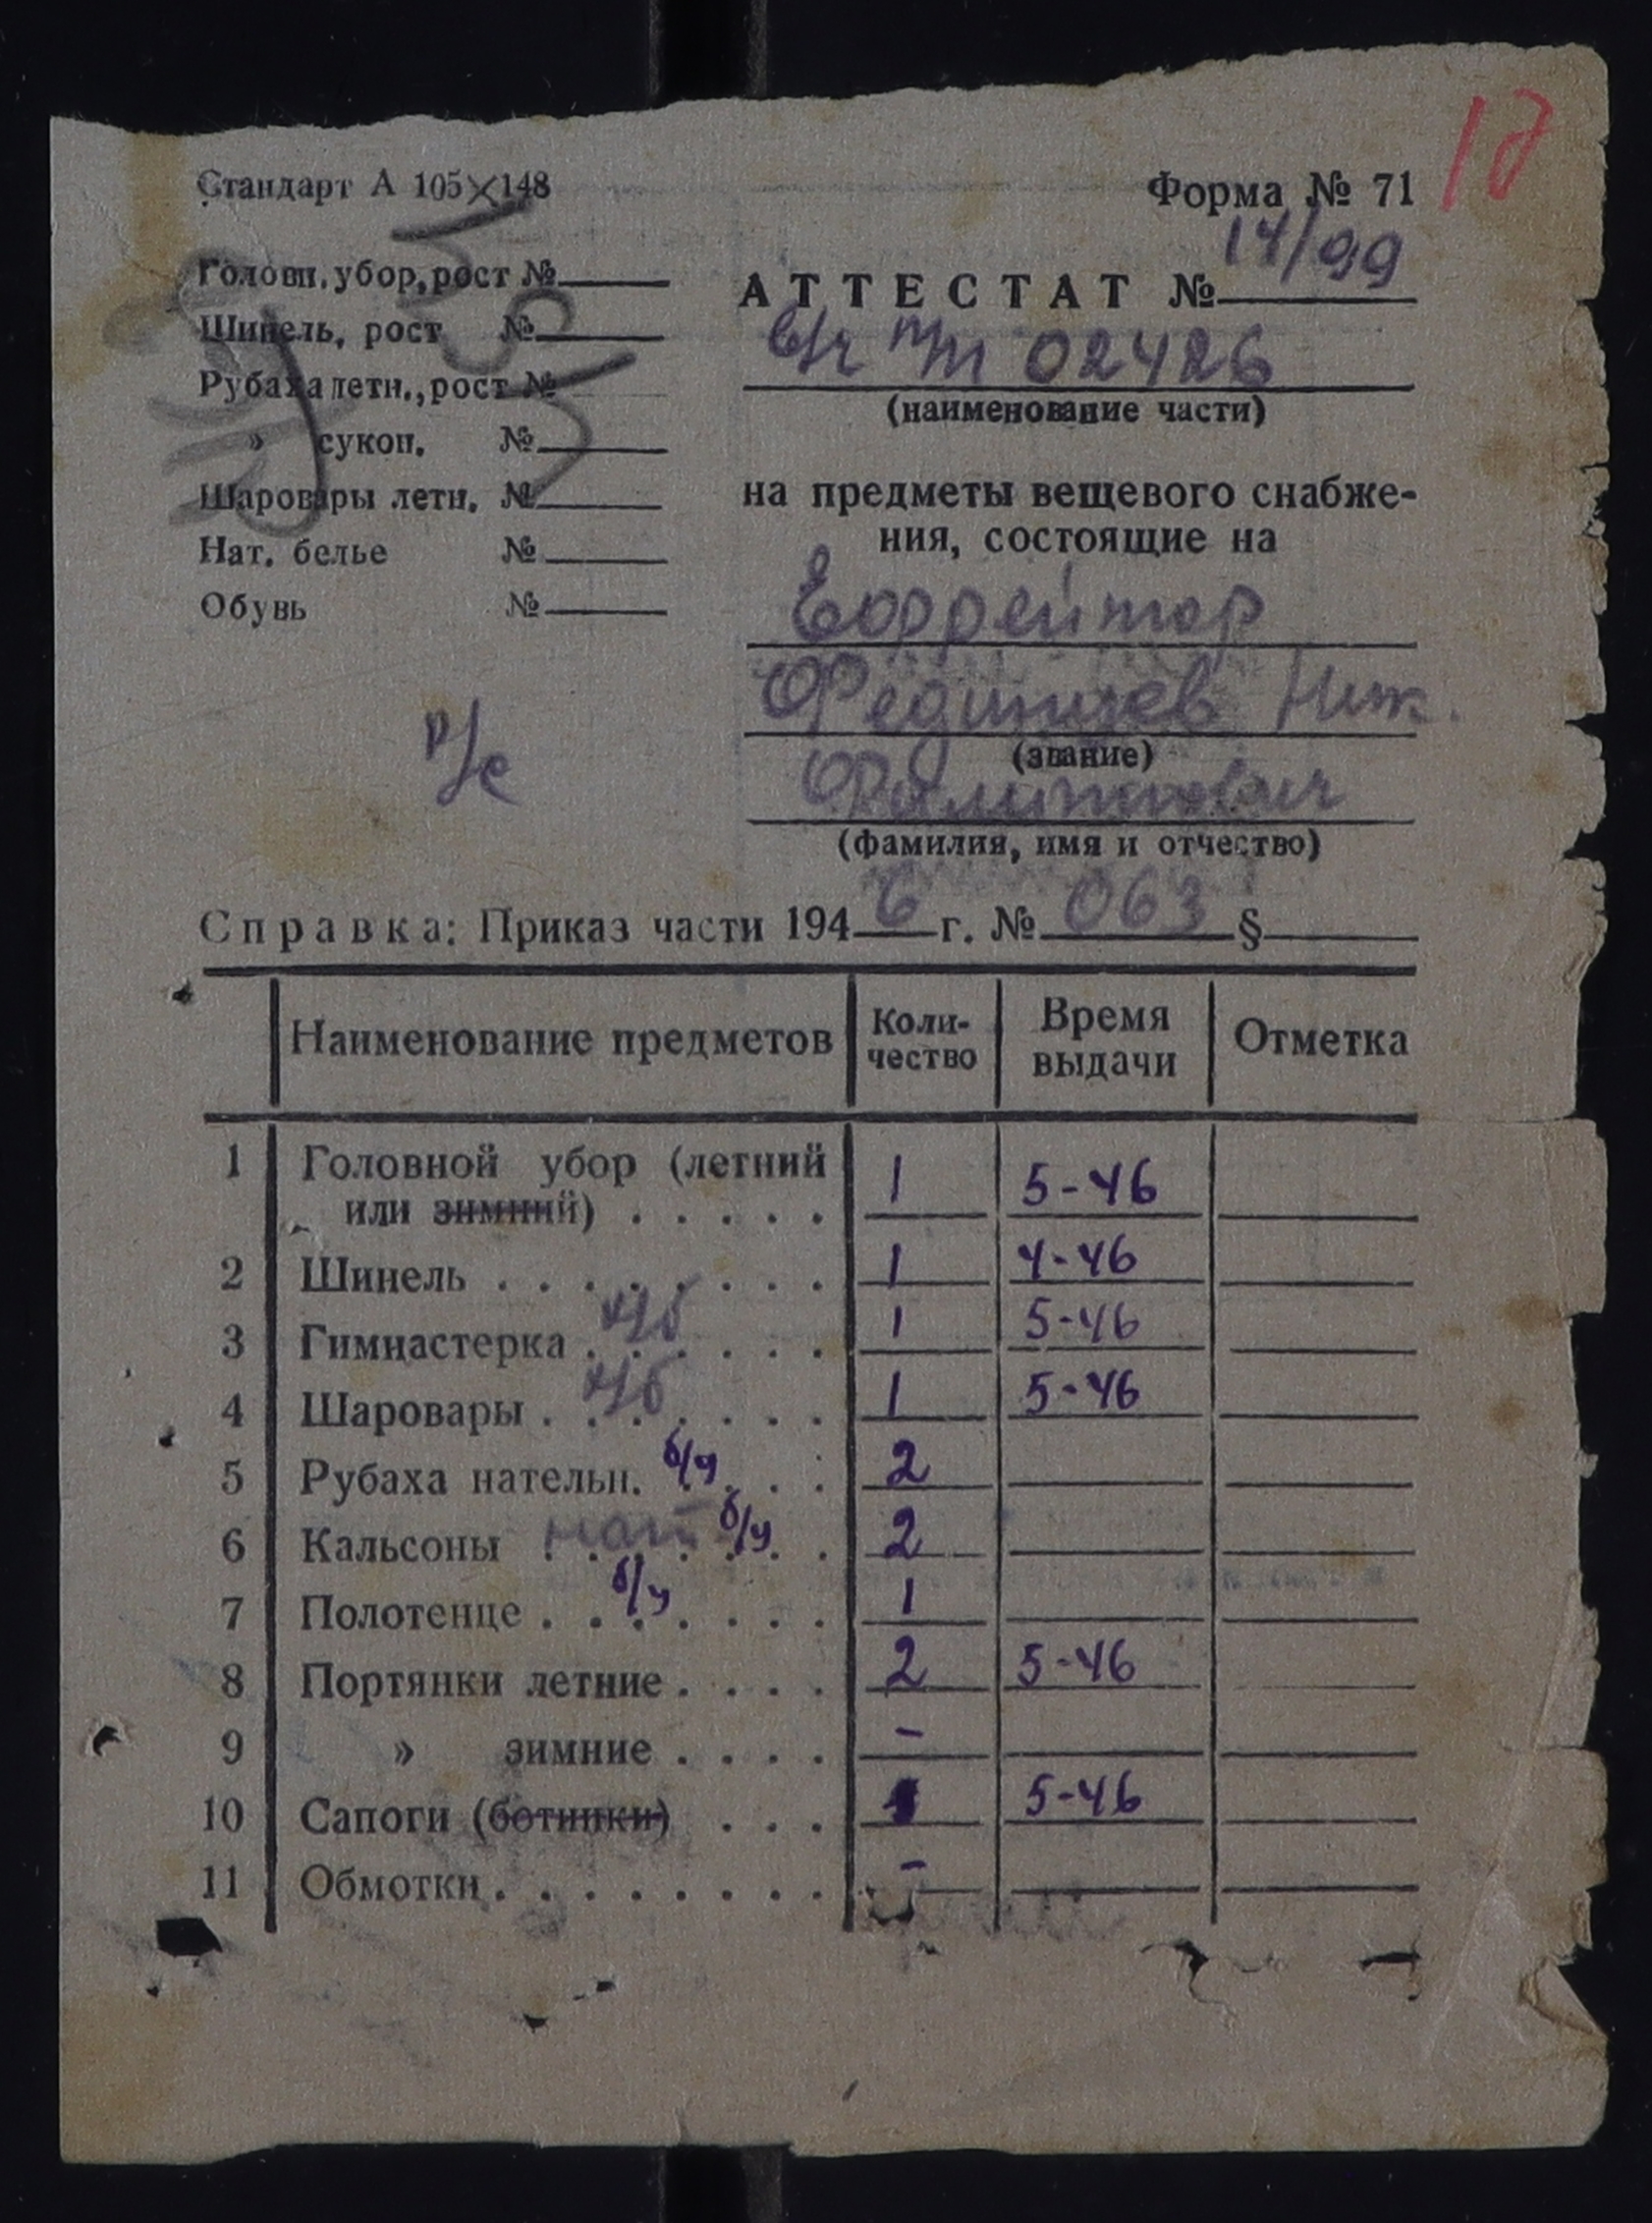 Стандарт А 105×148
Форма № 71
Головн. убор, рост №
Шинель, рост №
Рубаха летн., рост №
» сукон. №
Шаровары летн. №
Нат. белье №
Обувь №
р/с
АТТЕСТАТ № 14/99
в/ч п/п 02426
(наименование части)
на предметы вещевого снабже-
ния, состоящие на
Еофрейтор
Ник.
(звание)
(фамилия, имя и отчество)
Справка: Приказ части 1946 г. № 063 §
Наименование предметов Коли-чество Время выдачи Отметка
1 Головной убор (летний
или зимний) . . . . . 1 5-46
2 Шинель . . . . . . . . 1 4-46
3 Гимнастерка х/б . . . . . . 1 5-46
4 Шаровары х/б . . . . . . . 1 5-46
5 Рубаха нательн. б/у . . . 2
6 Кальсоны нат б/у . . . . . . . 2
7 Полотенце б/у . . . . . . . 1
8 Портянки летние . . . . 2 5-46
9 » зимние . . . . -
10 Сапоги (ботинки) . . . 1 5-46
11 Обмотки . . . . . . . . -